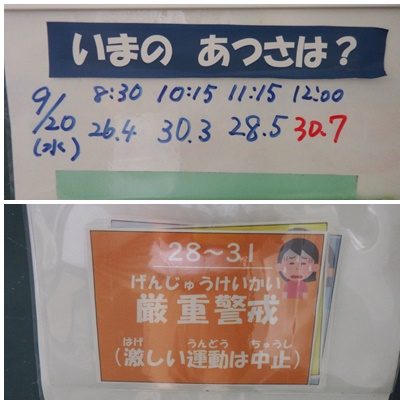 いまの あつさは？
9/20(水) 8:30 10:15 11:15 12:00
26.4 30.3 28.5 30.7
28～31
げんじゅうけいかい
厳重警戒
はげ うんどう ちゅうし
(激しい運動は中止)